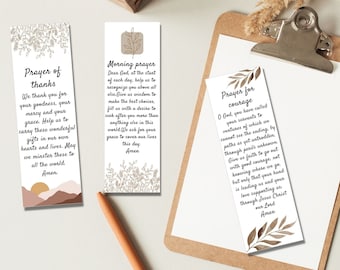 Prayer of
thanks
We thank you for
your goodness, your
mercy and your
grace. Help us to
carry these wonderful
gifts in our own
hearts and lives. May
we minister these to
all the world.
Amen
Morning prayer
Dear God, at the start
of each day, help us to
recognize you above all
else. Give us wisdom to
make the best choices,
fill us with a desire to
seek after you more than
anything else in this
world. We ask for your
grace to cover our lives
this day.
Amen
Prayer for
courage
O God, you have called
your servants to
ventures of which we
cannot see the ending, by
paths as yet untrodden,
through perils unknown.
Give us faith to go out
with good courage, not
knowing where we go,
but only that your hand
is leading us and your
love supporting us;
through Jesus Christ
our Lord.
Amen